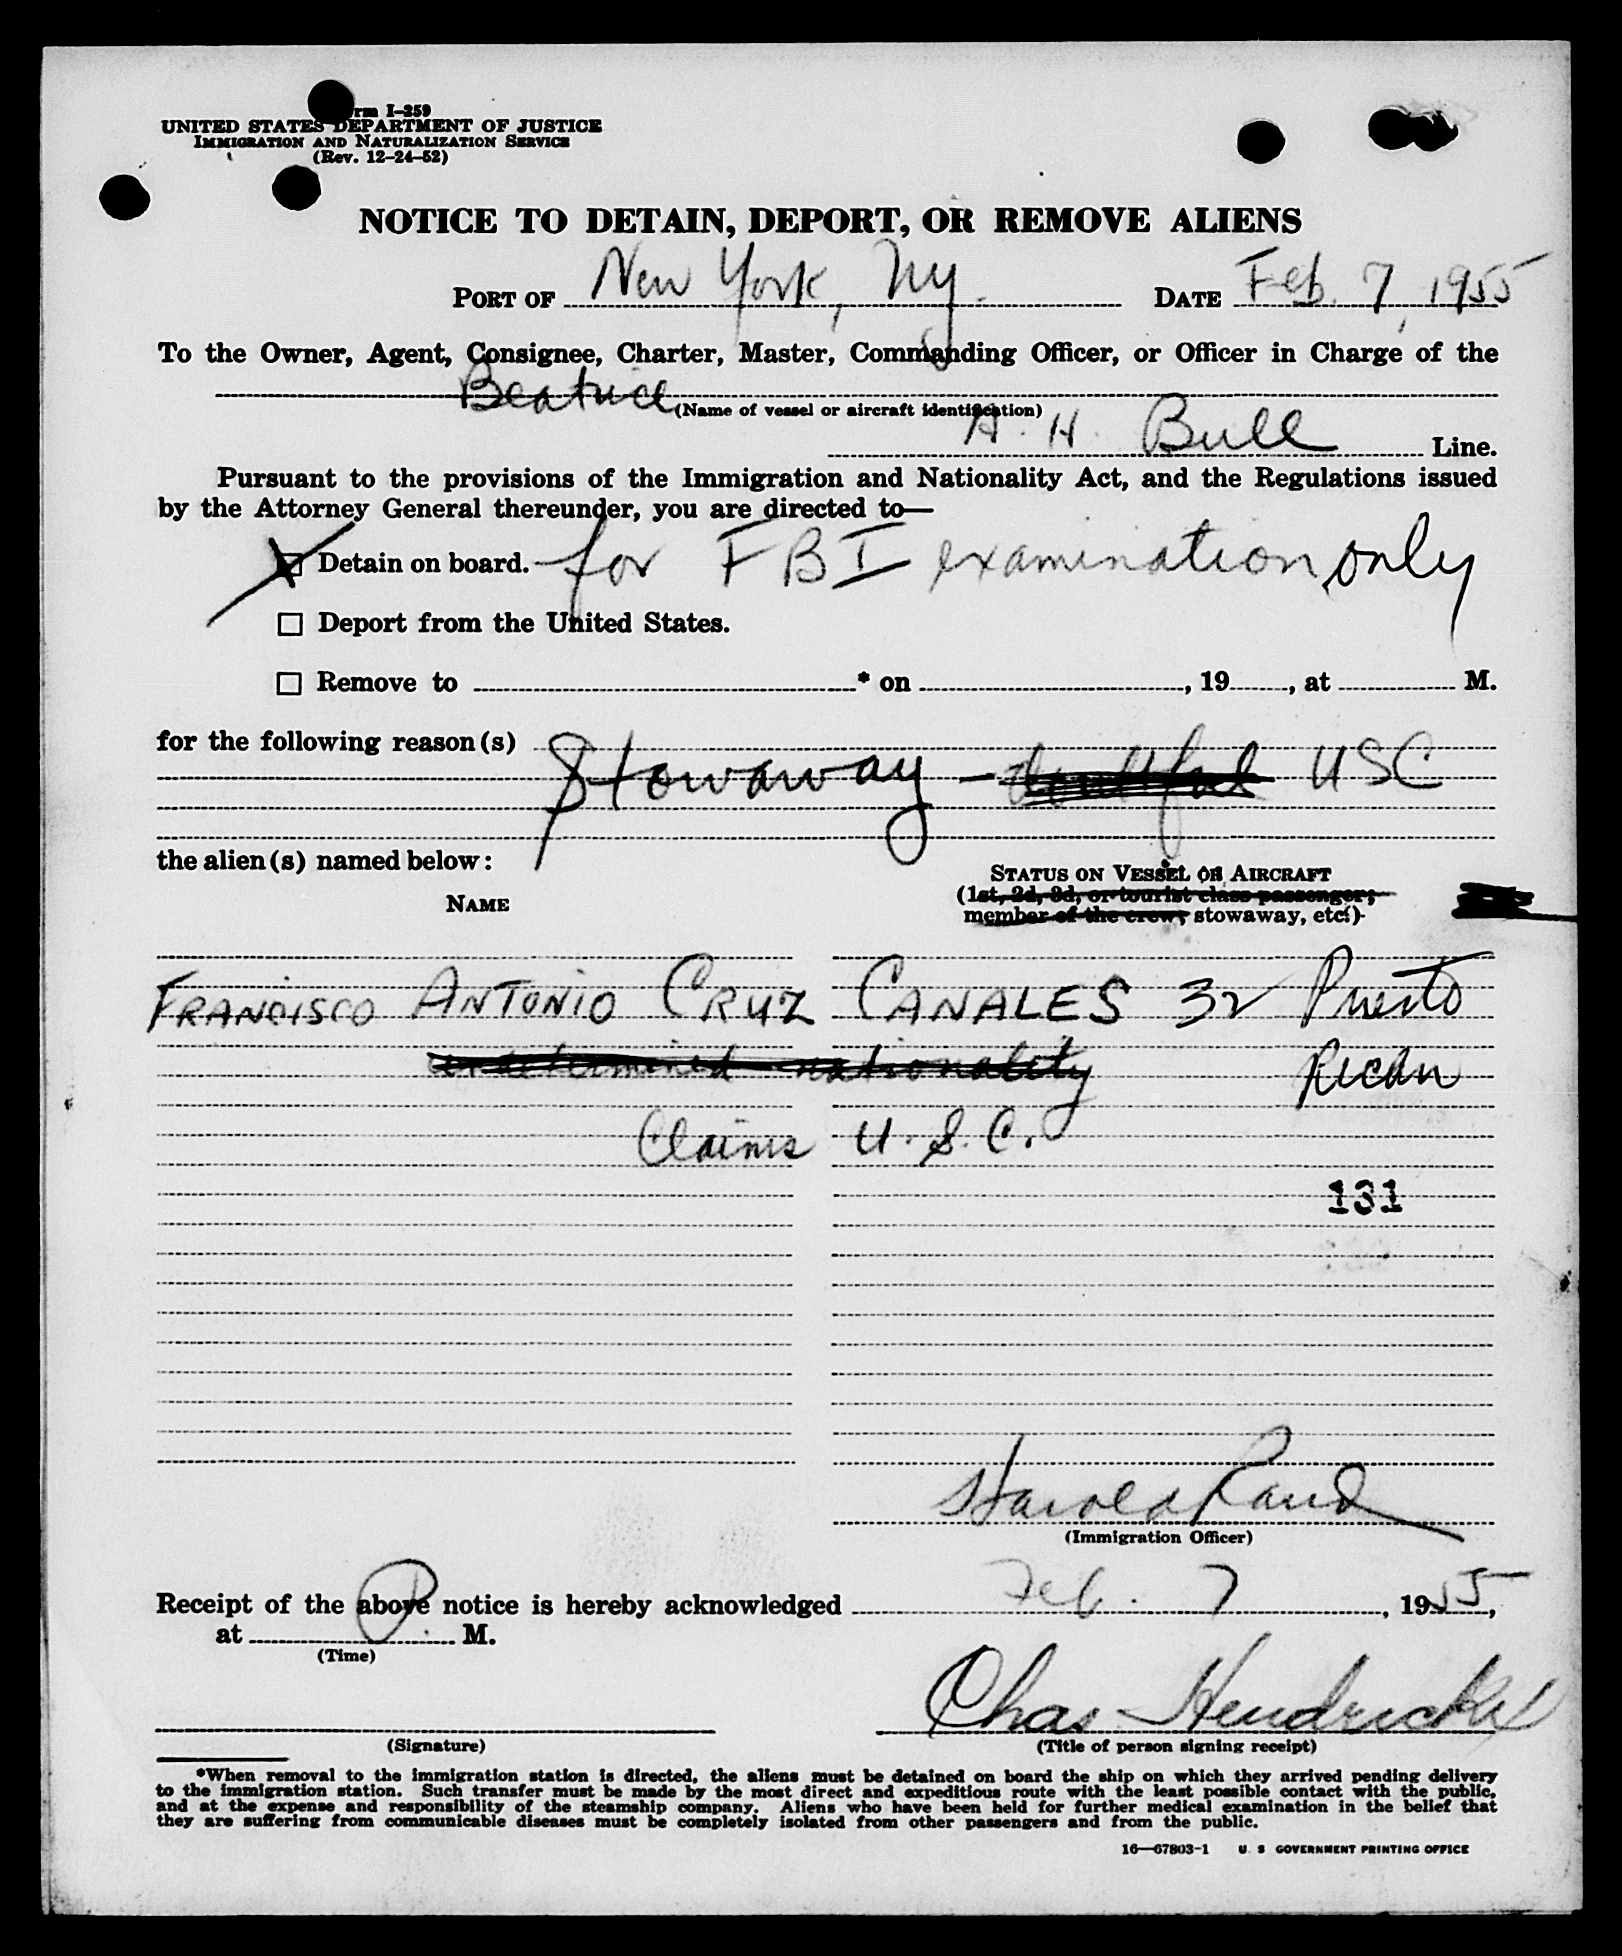 Form I-259
UNITED STATES DEPARTMENT OF JUSTICE
IMMIGRATION AND NATURALIZATION SERVICE
(Rev. 12-24-52)
NOTICE TO DETAIN, DEPORT, OR REMOVE ALIENS
PORT OF New York, NY. DATE Feb. 7, 1955
To the Owner, Agent, Consignee, Charter, Master, Commanding Officer, or Officer in Charge of the
Beatrice
(Name of vessel or aircraft identification)
A. H. Bull Line.
Pursuant to the provisions of the Immigration and Nationality Act, and the Regulations issued
by the Attorney General thereunder, you are directed to—
Detain on board. for FBI examination only
Deport from the United States.
Remove to * on , 19 , at M.
for the following reason(s)
Stowaway - doubtful USC
the alien(s) named below:
STATUS ON VESSEL OR AIRCRAFT
(1st, 2d, 3d, or tourist class passenger;
NAME
member of the crew; stowaway, etc.)
FRANCISCO ANTONIO CRUZ CANALES 32 Puerto
undetermined nationality Rican
Claims U.S.C.
131
Harold Rand
(Immigration Officer)
Receipt of the above notice is hereby acknowledged Feb. 7, 1955,
at P. M.
(Time)
Chas Hendrickx
(Signature) (Title of person signing receipt)
*When removal to the immigration station is directed, the aliens must be detained on board the ship on which they arrived pending delivery
to the immigration station. Such transfer must be made by the most direct and expeditious route with the least possible contact with the public,
and at the expense and responsibility of the steamship company. Aliens who have been held for further medical examination in the belief that
they are suffering from communicable diseases must be completely isolated from other passengers and from the public.
16—67803-1 U S GOVERNMENT PRINTING OFFICE